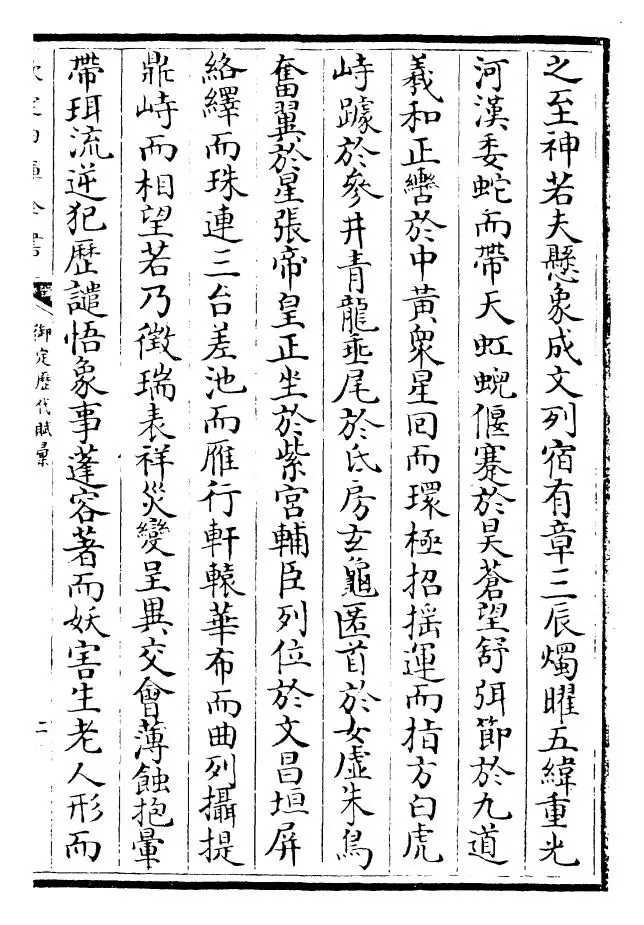 之至神若夫懸象成文列宿有章三辰燭曜五緯重光
河漢委蛇而帶天虹蜺偃蹇於昊蒼望舒弭節於九道
羲和正轡於中黃衆星回而環極招搖運而指方白虎
峙躆於參井青龍垂尾於氐房玄龜匿首於女虛朱鳥
奮翼於星張帝皇正坐於紫宮輔臣列位於文昌垣屏
絡繹而珠連三台差池而雁行軒轅華布而曲列攝提
鼎峙而相望若乃徵瑞表祥災變呈異交會薄蝕抱暈
帶珥流逆犯歷譴悟象事蓬容著而妖害生老人形而
欽定四庫全書
御定歷代賦彙
二